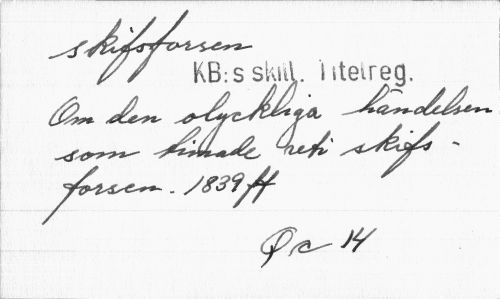 skifsforsen
KB:s skill. Titelreg.
Om den olyckliga händelsen
som timade uti skifs-
forsen. 1839 ff
Qc 14